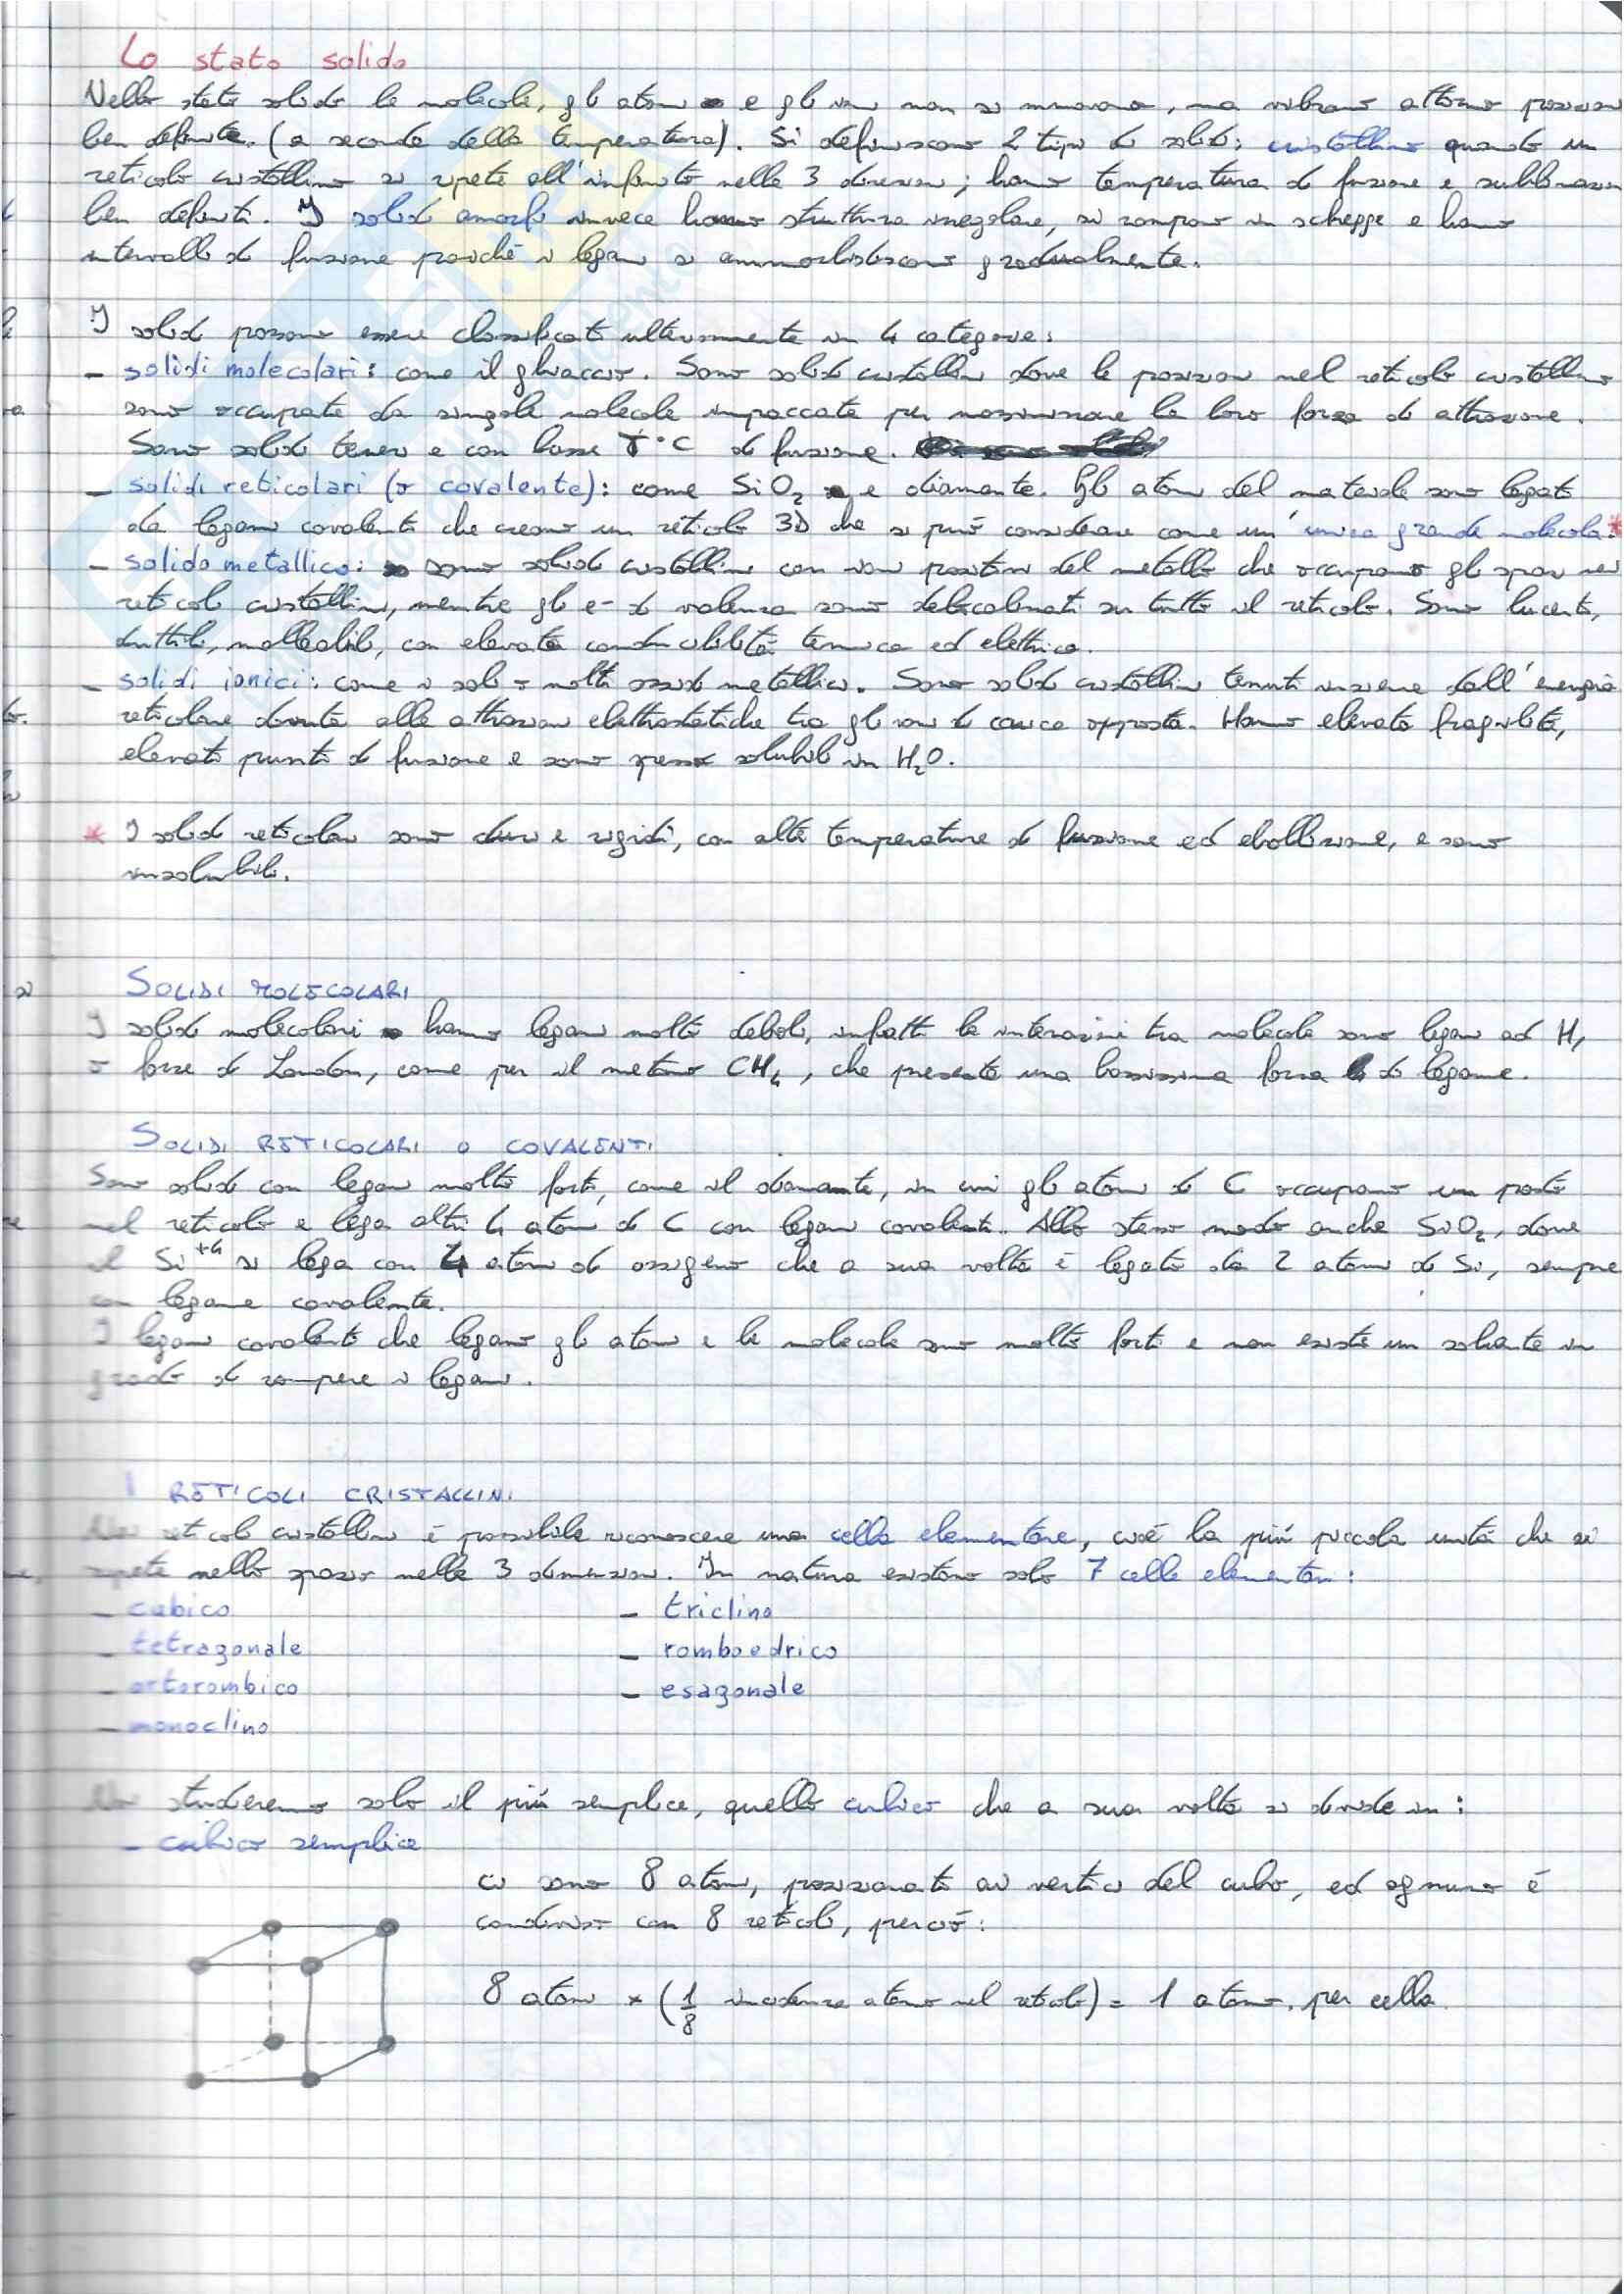 Lo stato solido
Nello stato solido le molecole, gli atomi e gli ioni non si muovono, ma vibrano attorno posizioni
ben definite. (a seconda della temperatura). Si definiscono 2 tipi di solidi: cristallino quando un
reticolo cristallino si ripete all'infinito nelle 3 direzioni; hanno temperatura di fusione e sublimazion
ben definiti. I solidi amorfi invece hanno struttura irregolare, si rompono in schegge e hanno
intervalli di fusione poiché i legami si ammorbidiscono gradualmente.
I solidi possono essere classificati ulteriormente in 4 categorie:
- solidi molecolari: come il ghiaccio. Sono solidi cristallini dove le posizioni nel reticolo cristallino
sono occupate da singole molecole impaccate per massimizzare la loro forza di attrazione.
Sono solidi teneri e con basse T°C di fusione.
- solidi reticolari (o covalente): come SiO₂ e diamante. Gli atomi del materiale sono legati
da legami covalenti che creano un reticolo 3D che si può considerare come un'unica grande molecola.*
- solido metallico: sono solidi cristallini con ioni positivi del metallo che occupano gli spazi nei
reticoli cristallini, mentre gli e- di valenza sono delocalizzati su tutto il reticolo. Sono lucenti,
duttili, malleabili, con elevata conducibilità termica ed elettrica.
- solidi ionici: come i sali o molti ossidi metallici. Sono solidi cristallini tenuti insieme dall'energia
reticolare dovuta alle attrazioni elettrostatiche tra gli ioni di carica opposta. Hanno elevata fragilità,
elevati punti di fusione e sono spesso solubili in H₂O.
* I solidi reticolari sono duri e rigidi, con alte temperature di fusione ed ebollizione, e sono
insolubili.
SOLIDI MOLECOLARI
I solidi molecolari hanno legami molto deboli, infatti le interazioni tra molecole sono legami ad H,
o forze di London, come per il metano CH₄, che presenta una bassissima forza di legame.
SOLIDI RETICOLARI O COVALENTI
Sono solidi con legami molto forti, come il diamante, in cui gli atomi di C occupano un posto
nel reticolo e lega altri 4 atomi di C con legami covalenti. Allo stesso modo anche SiO₂, dove
il Si⁺⁴ si lega con 4 atomi di ossigeno che a sua volta è legato da 2 atomi di Si, sempre
con legame covalente.
I legami covalenti che legano gli atomi e le molecole sono molto forti e non esiste un solvente in
grado di rompere i legami.
I RETICOLI CRISTALLINI
Nei reticoli cristallini è possibile riconoscere una cella elementare, cioè la più piccola unità che si
ripete nello spazio nelle 3 dimensioni. In natura esistono solo 7 celle elementari:
- cubico
- triclino
- tetragonale
- romboedrico
- ortorombico
- esagonale
- monoclino
Noi studieremo solo il più semplice, quello cubico che a sua volta si divide in:
- cubico semplice
ci sono 8 atomi, posizionati ai vertici del cubo, ed ognuno è
condiviso con 8 reticoli, perciò:
8 atomi × (1/8 incidenza atomo nel reticolo) = 1 atomo. per cella